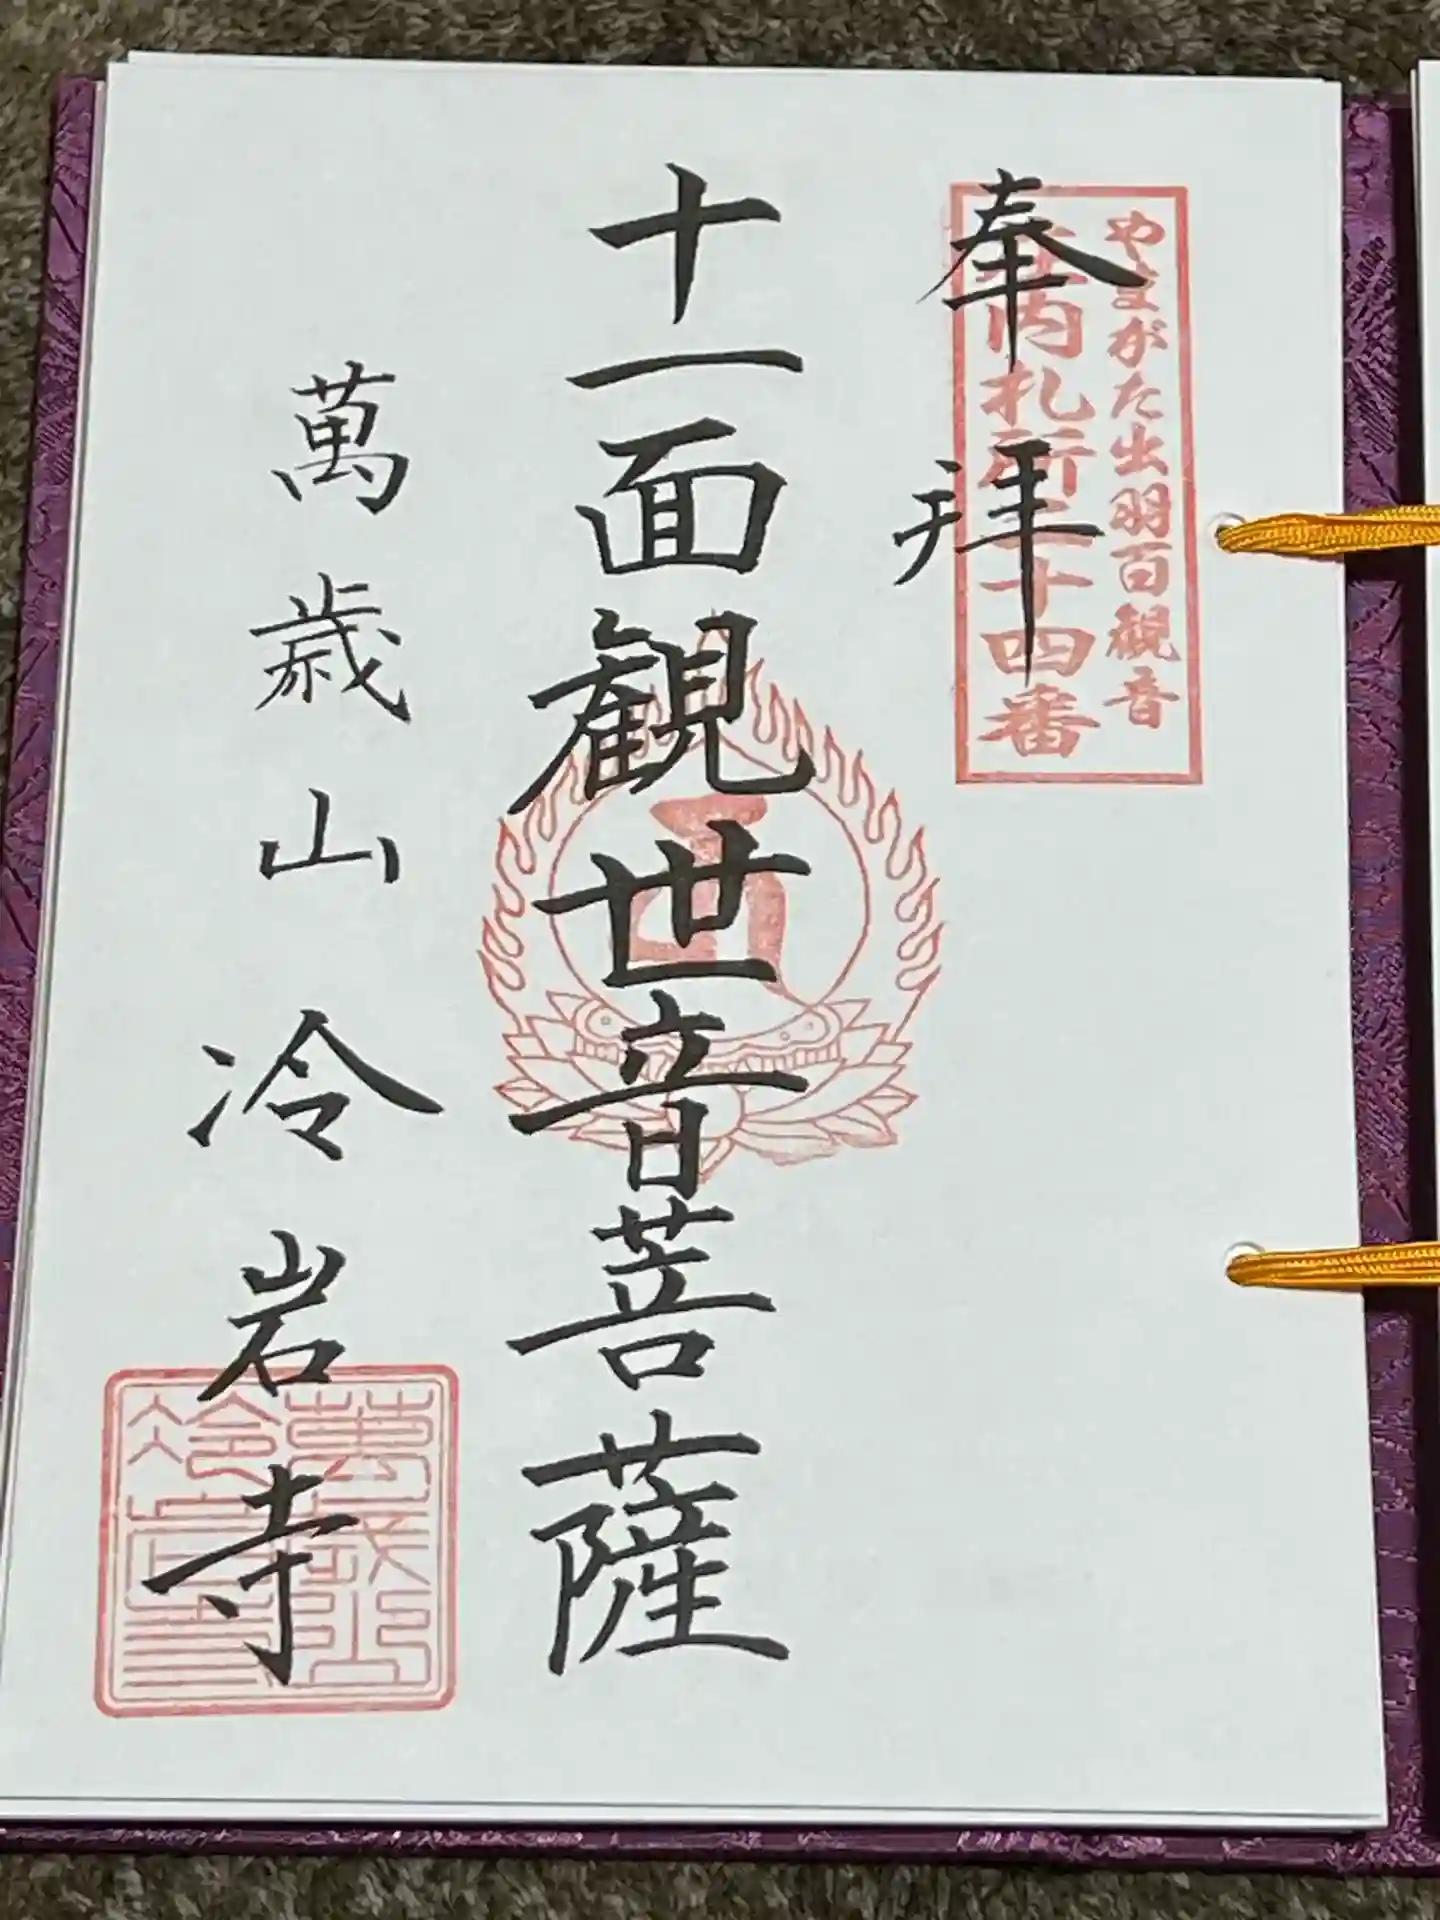 やまがた出羽百観音
庄内札所二十四番
奉拝
十一面観世音菩薩
萬歳山冷岩寺
萬歳山
冷岩寺